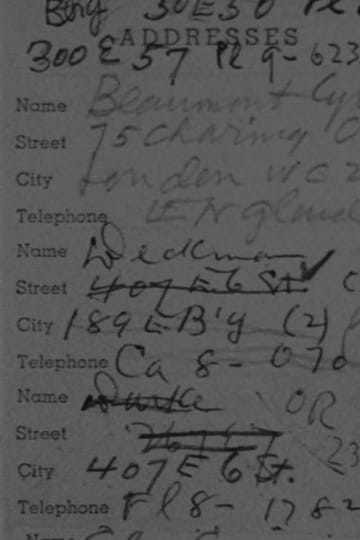 30 E 30 Pl
ADDRESSES
300 E 57 Pl 9-623
Name Beaumont
Street 75 Charing C
City London WC2
Telephone ENGland
Name Deckman
Street 407 E 6 St.
City 189 E B'y (2)
Telephone Ca 8-070
Name OR
Street 23
City 407 E 6 St.
Telephone Fl 8- 1782
Name